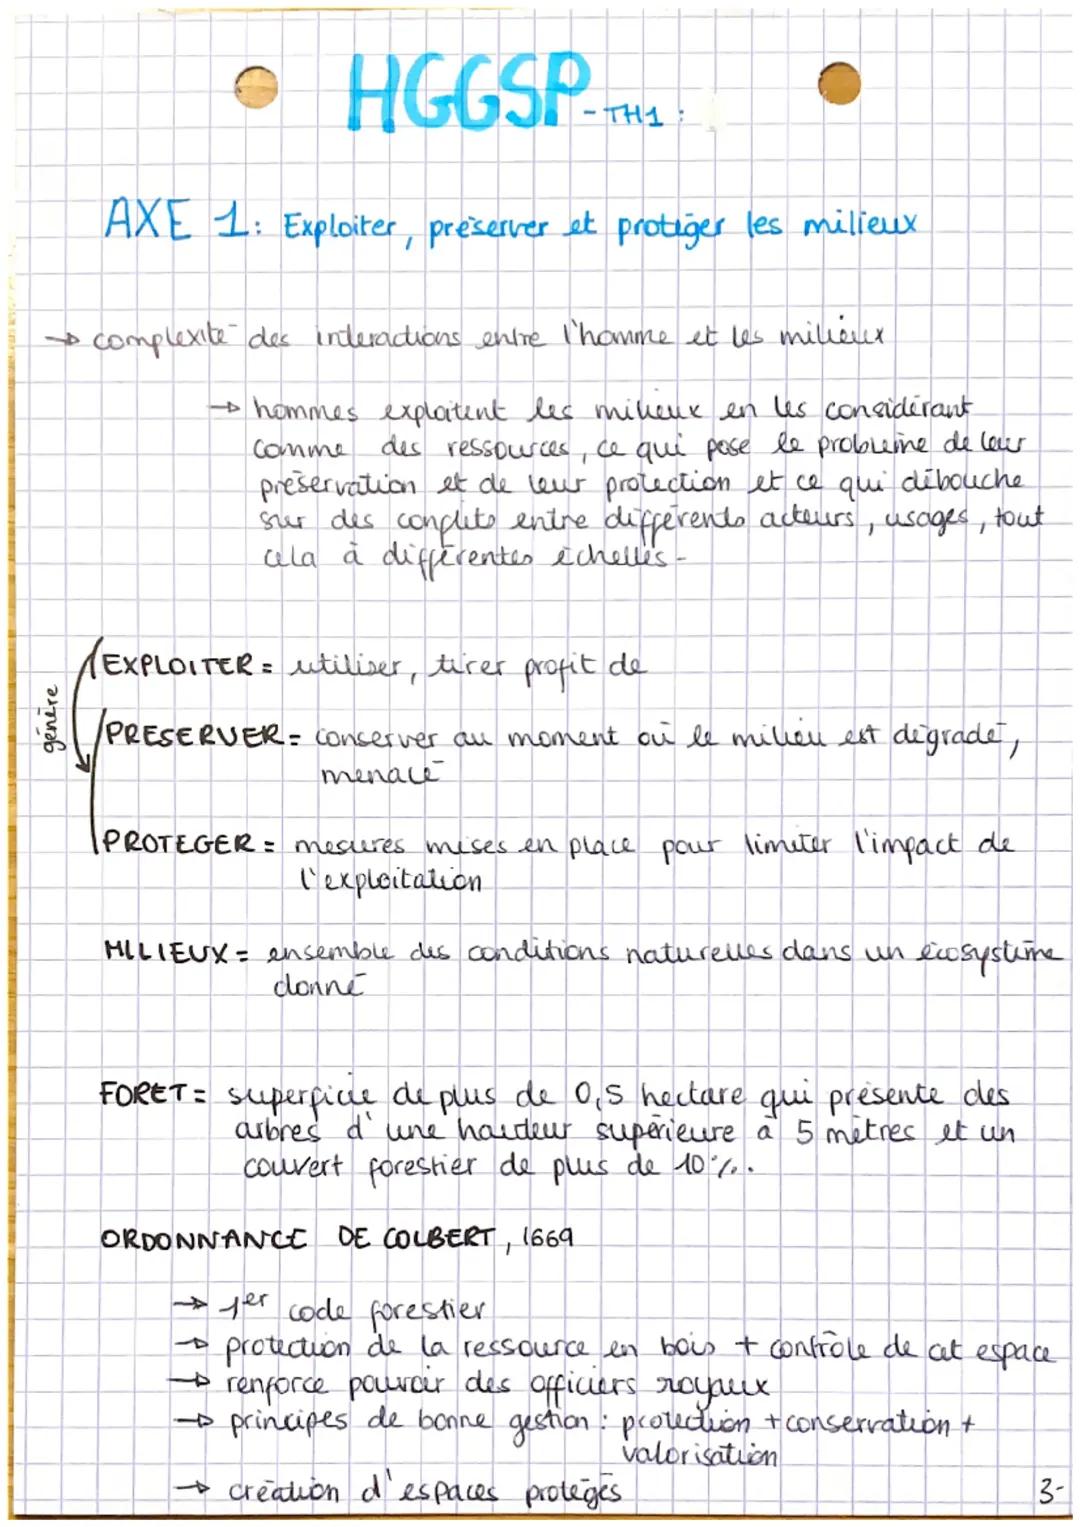 HGGSP - TH1 :
AXE 1 : Exploiter, préserver et protéger les milieux
→ complexité des interactions entre l'homme et les milieux
→ hommes exploitent les milieux en les considérant
comme des ressources, ce qui pose le problème de leur
préservation et de leur protection et ce qui débouche
sur des conflits entre différents acteurs, usages, tout
cela à différentes échelles -
génère
EXPLOITER = utiliser, tirer profit de
PRESERVER = conserver au moment où le milieu est dégradé,
menacé
PROTEGER = mesures mises en place pour limiter l'impact de
l'exploitation
MILIEUX = ensemble des conditions naturelles dans un écosystème
donné
FORET = superficie de plus de 0,5 hectare qui présente des
arbres d'une hauteur supérieure à 5 mètres et un
couvert forestier de plus de 10 %.
ORDONNANCE DE COLBERT, 1669
→ 1er code forestier
→ protection de la ressource en bois + contrôle de cet espace
→ renforce pouvoir des officiers royaux
→ principes de bonne gestion : protection + conservation +
valorisation
→ création d'espaces protégés
3-